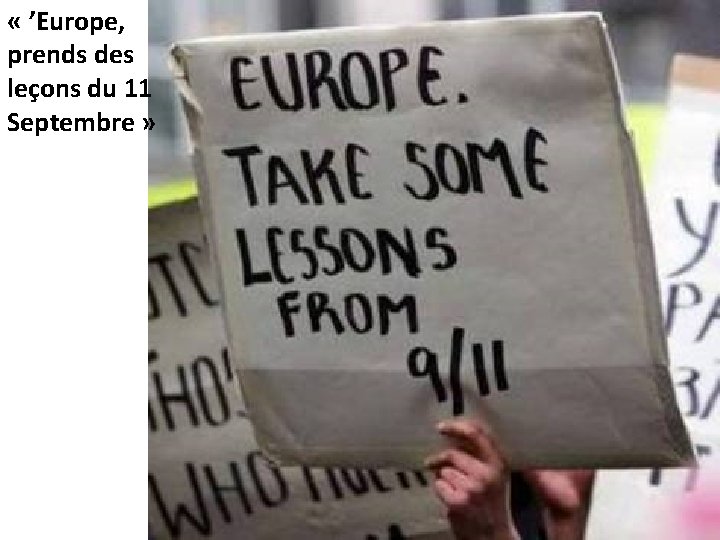 « ’Europe,
prends des
leçons du 11
Septembre »
EUROPE.
TAKE SOME
LESSONS
FROM
9/11
WHO